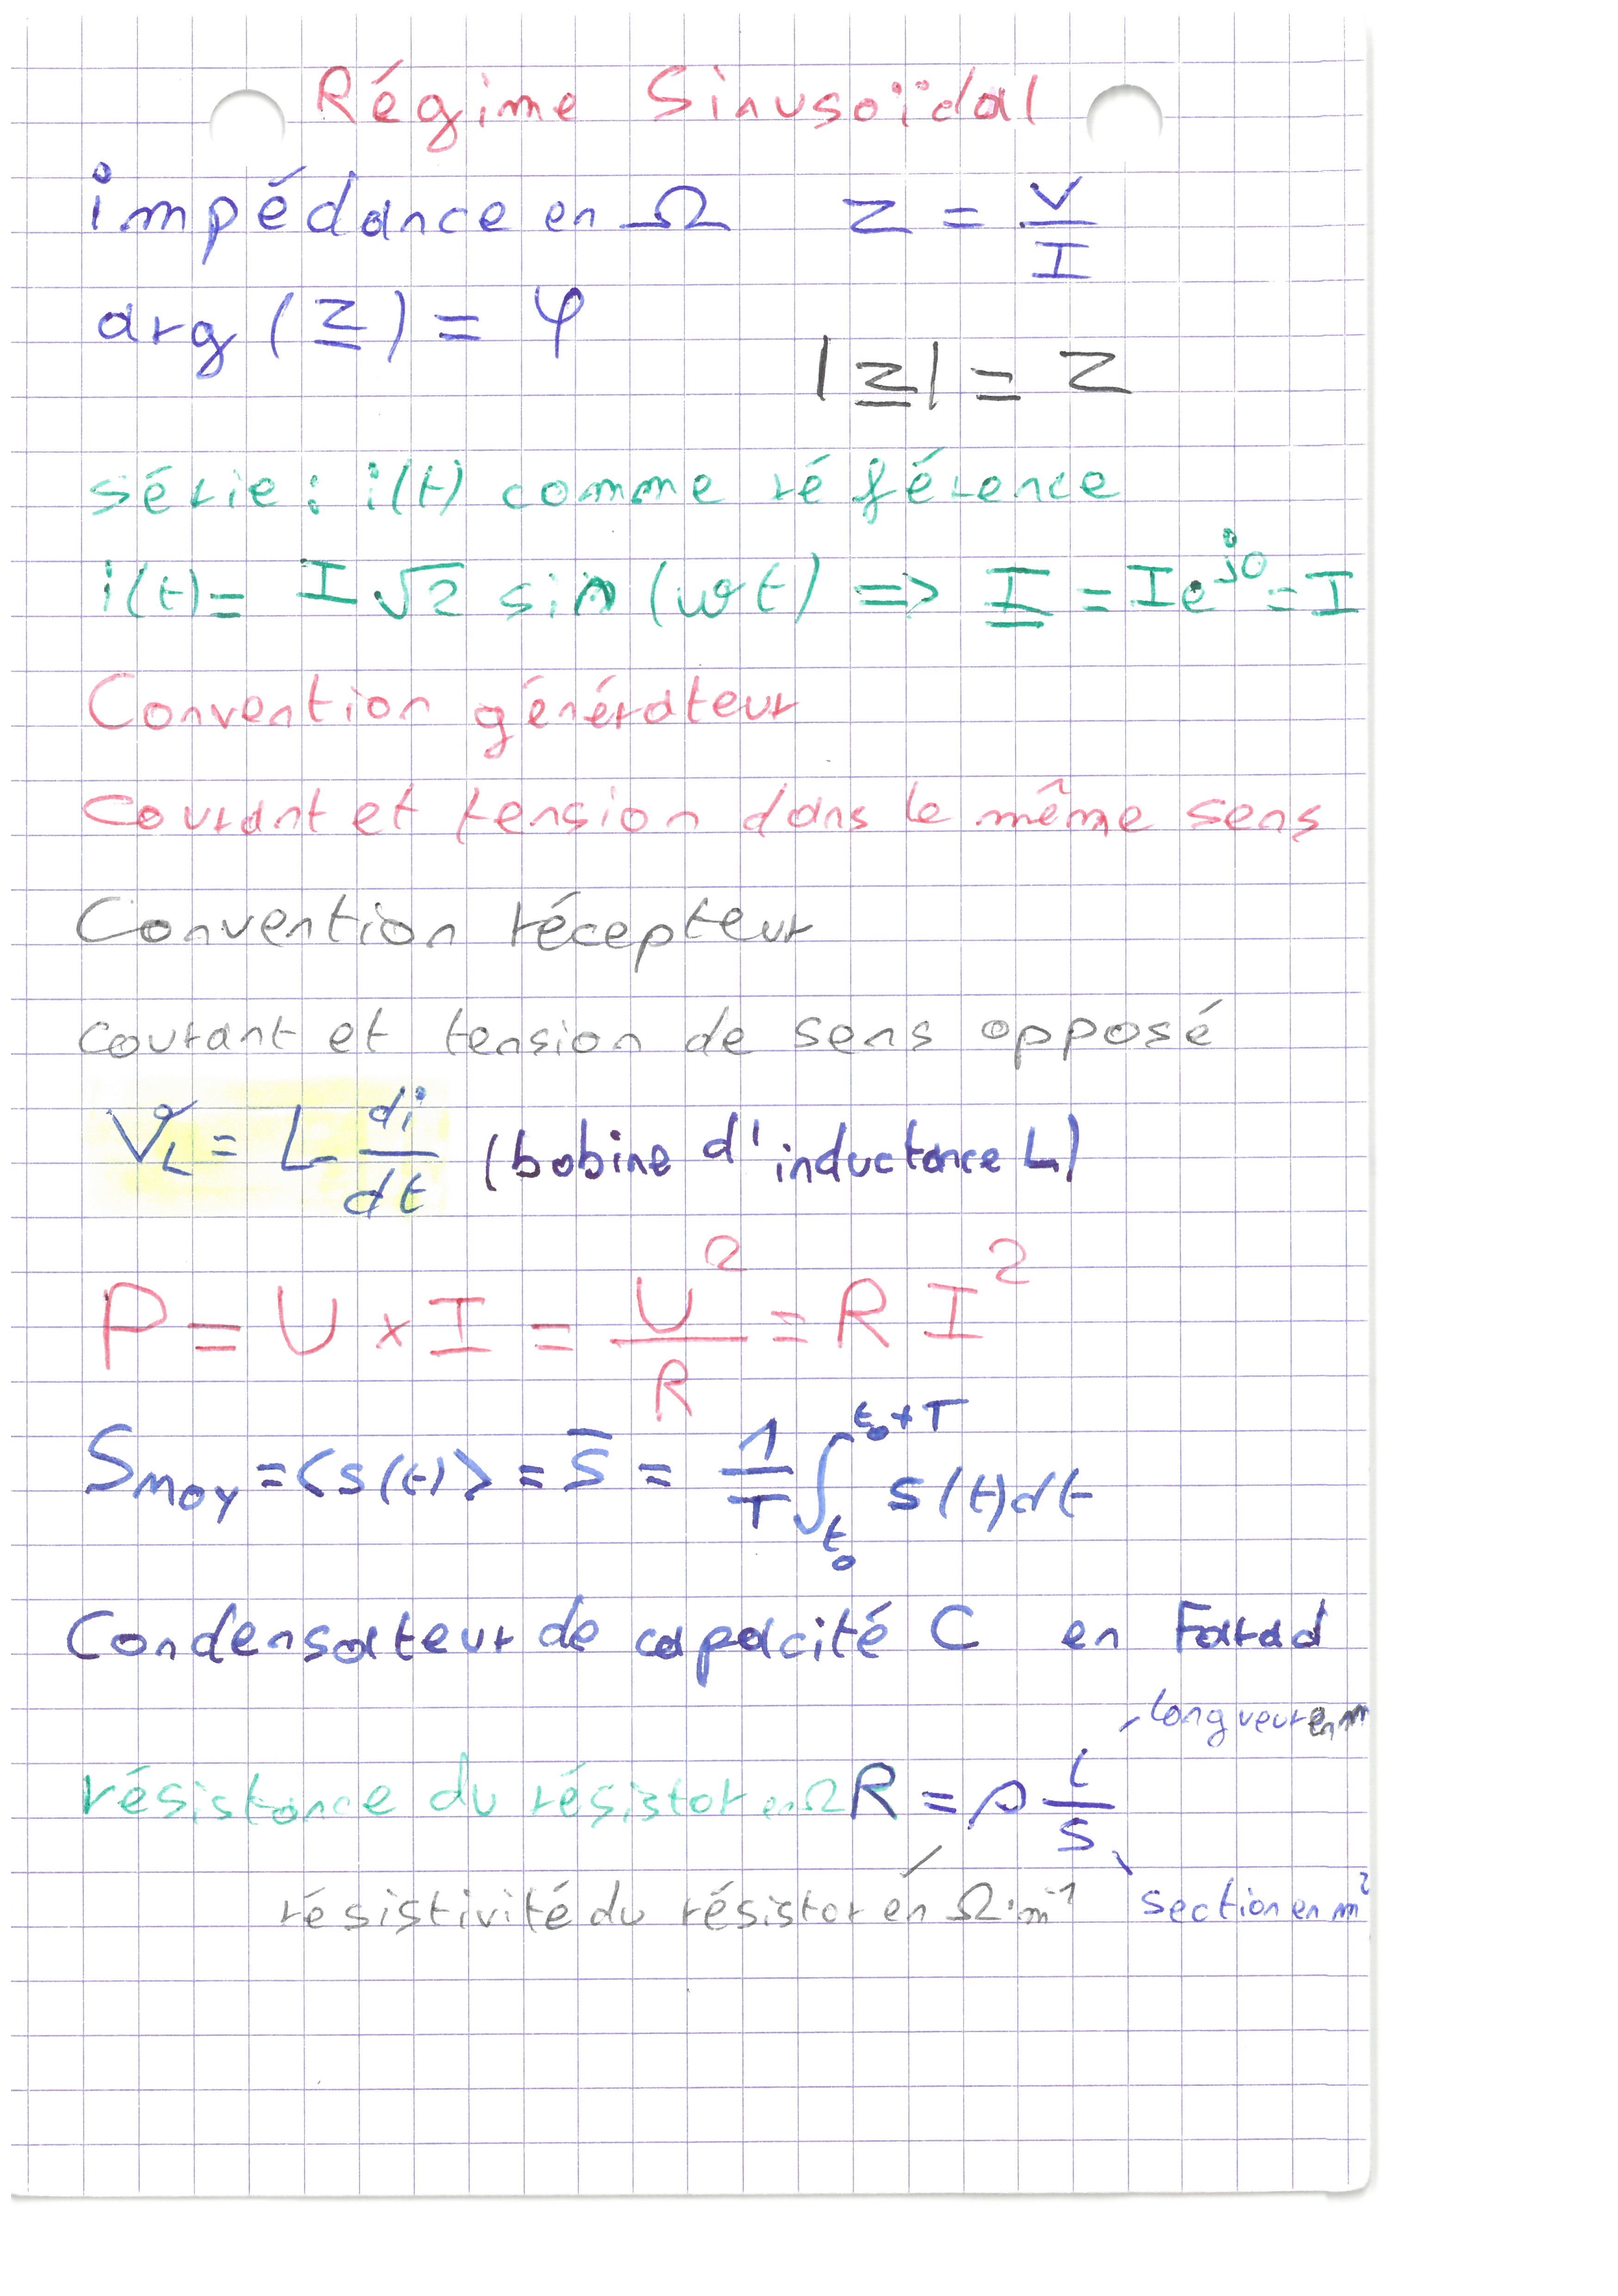 Régime Sinusoïdal
impédance en Ω Z = V/I
arg (Z̲) = φ
|Z̲| = Z
série : i(t) comme référence
i(t) = I√2 sin (ωt) => I̲ = Ie^j0 = I
Convention générateur
Courant et tension dans le même sens
Convention récepteur
courant et tension de sens opposé
V_L = L di/dt (bobine d'inductance L)
P = U × I = U²/R = R I²
S_moy = <s(t)> = s̅ = 1/T ∫_t₀^t₀+T s(t)dt
Condensateur de capacité C en Farad
longueur en m
résistance du résistor en Ω R = ρ l/s
résistivité du résistor en Ω·m⁻¹ section en m²